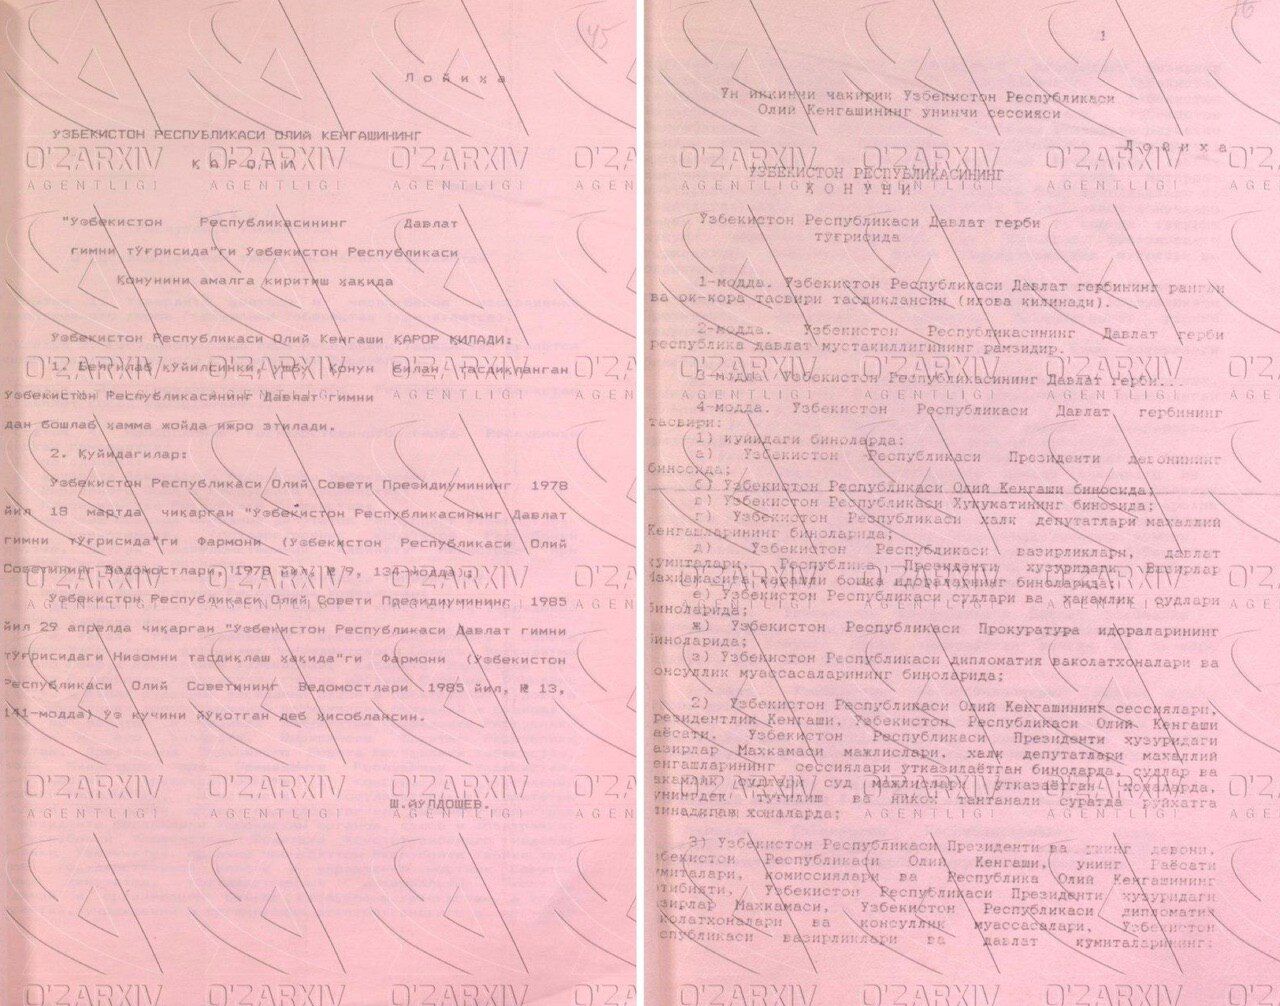 45
Лойиҳа
ЎЗБЕКИСТОН РЕСПУБЛИКАСИ ОЛИЙ КЕНГАШИНИНГ
ҚАРОРИ
"Ўзбекистон Республикасининг Давлат
гимни тўғрисида"ги Ўзбекистон Республикаси
Қонунини амалга киритиш ҳақида
Ўзбекистон Республикаси Олий Кенгаши ҚАРОР ҚИЛАДИ:
1. Белгилаб қўйилсинки, ушбу Қонун билан тасдиқланган
Ўзбекистон Республикасининг Давлат гимни
дан бошлаб ҳамма жойда ижро этилади.
2. Қуйидагилар:
Ўзбекистон Республикаси Олий Совети Президиумининг 1978
йил 18 мартда чиқарган "Ўзбекистон Республикасининг Давлат
гимни тўғрисида"ги Фармони (Ўзбекистон Республикаси Олий
Советининг Ведомостлари, 1978 йил, № 9, 134-модда);
Ўзбекистон Республикаси Олий Совети Президиумининг 1985
йил 29 апрелда чиқарган "Ўзбекистон Республикаси Давлат гимни
тўғрисидаги Низомни тасдиқлаш ҳақида"ги Фармони (Ўзбекистон
Республикаси Олий Советининг Ведомостлари 1985 йил, № 13,
141-модда) ўз кучини йўқотган деб ҳисоблансин.
Ш.ЙЎЛДОШЕВ.
1
Ўн иккинчи чакирик Ўзбекистон Республикаси
Олий Кенгашининг унинчи сессияси
Лойиха
ЎЗБЕКИСТОН РЕСПУБЛИКАСИНИНГ
КОНУНИ
Ўзбекистон Республикаси Давлат герби
туғрисида
1-модда. Ўзбекистон Республикаси Давлат гербининг рангли
ва ок-кора тасвири тасдиклансин (илова килинади).
2-модда. Ўзбекистон Республикасининг Давлат герби
республика давлат мустакиллигининг рамзидир.
3-модда. Ўзбекистон Республикасининг Давлат герби...
4-модда. Ўзбекистон Республикаси Давлат гербининг
тасвири:
1) куйидаги биноларда:
а) Ўзбекистон Республикаси Президенти девонининг
биносида;
б) Ўзбекистон Республикаси Олий Кенгаши биносида;
в) Ўзбекистон Республикаси Хукуматининг биносида;
г) Ўзбекистон Республикаси халк депутатлари махаллий
Кенгашларининг биноларида;
д) Ўзбекистон Республикаси вазирликлари, давлат
кумиталари, Республика Президенти хузуридаги Вазирлар
Махкамасига карашли бошка идораларнинг биноларида;
е) Ўзбекистон Республикаси судлари ва хакамлик судлари
биноларида;
ж) Ўзбекистон Республикаси Прокуратура идораларининг
иноларида;
з) Ўзбекистон Республикаси дипломатия ваколатхоналари ва
онсуллик муассасаларининг биноларида;
2) Ўзбекистон Республикаси Олий Кенгашининг сессиялари,
резидентлик Кенгаши, Ўзбекистон Республикаси Олий Кенгаши
аёсати, Ўзбекистон Республикаси Президенти хузуридаги
азирлар Махкамаси мажлислари, халк депутатлари махаллий
енгашларининг сессиялари утказилаётган биноларда, судлар ва
акамлик судлари суд мажлислари утказаётган хоналарда,
унингдек тугилиш ва никох тантанали суратда руйхатга
линадиган хоналарда;
3) Ўзбекистон Республикаси Президенти ва унинг девони,
збекистон Республикаси Олий Кенгаши, унинг Раёсати
умиталари, комиссиялари ва Республика Олий Кенгашининг
отибияти, Ўзбекистон Республикаси Президенти хузуридаги
азирлар Махкамаси, Ўзбекистон Республикаси дипломатия
колатхоналари ва консуллик муассасалари, Ўзбекистон
еспубликаси вазирликлари ва давлат кумиталарининг;
O'ZARXIV
AGENTLIGI